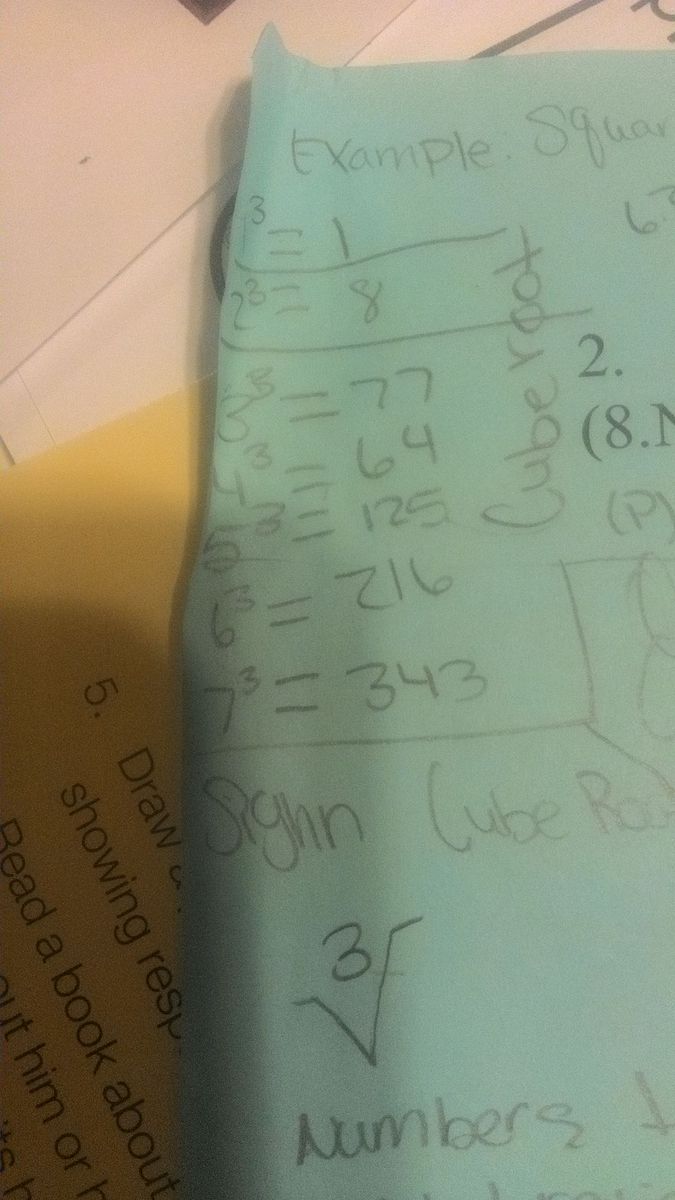 Example: Squar
1³ = 1
2³ = 8
3³ = 77
4³ = 64
5³ = 125
6³ = 216
7³ = 343
Cube root
6³
2.
(8.N
(P)
Sighn Cube Roo
∛
Numbers
5. Draw a
showing resp
Read a book about
out him or h